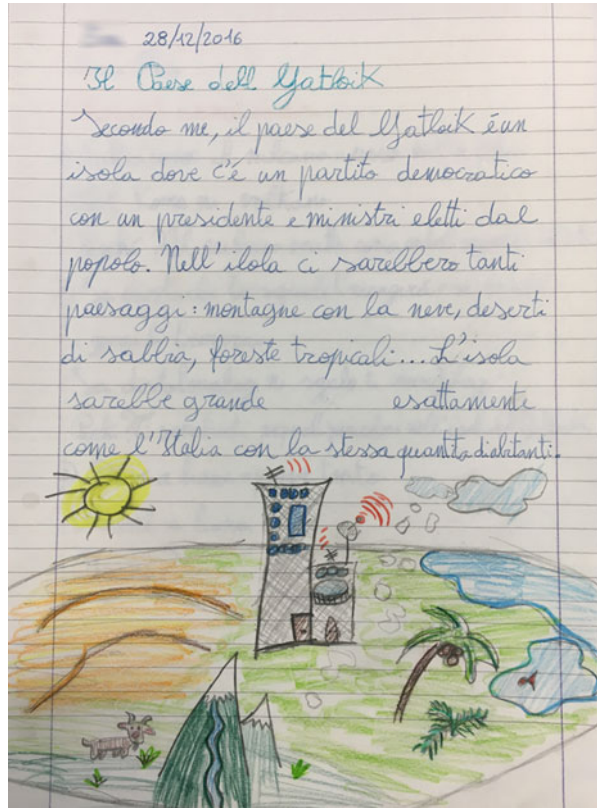 28/12/2016
Il Paese dell Yatloik
Secondo me, il paese del Yatloik é un
isola dove c'é un partito democratico
con un presidente e ministri eletti dal
popolo. Nell'ilola ci sarebbero tanti
paesaggi: montagne con la neve, deserti
di sabbia, foreste tropicali... L'isola
sarebbe grande esattamente
come l'Italia con la stessa quantita di abitanti.